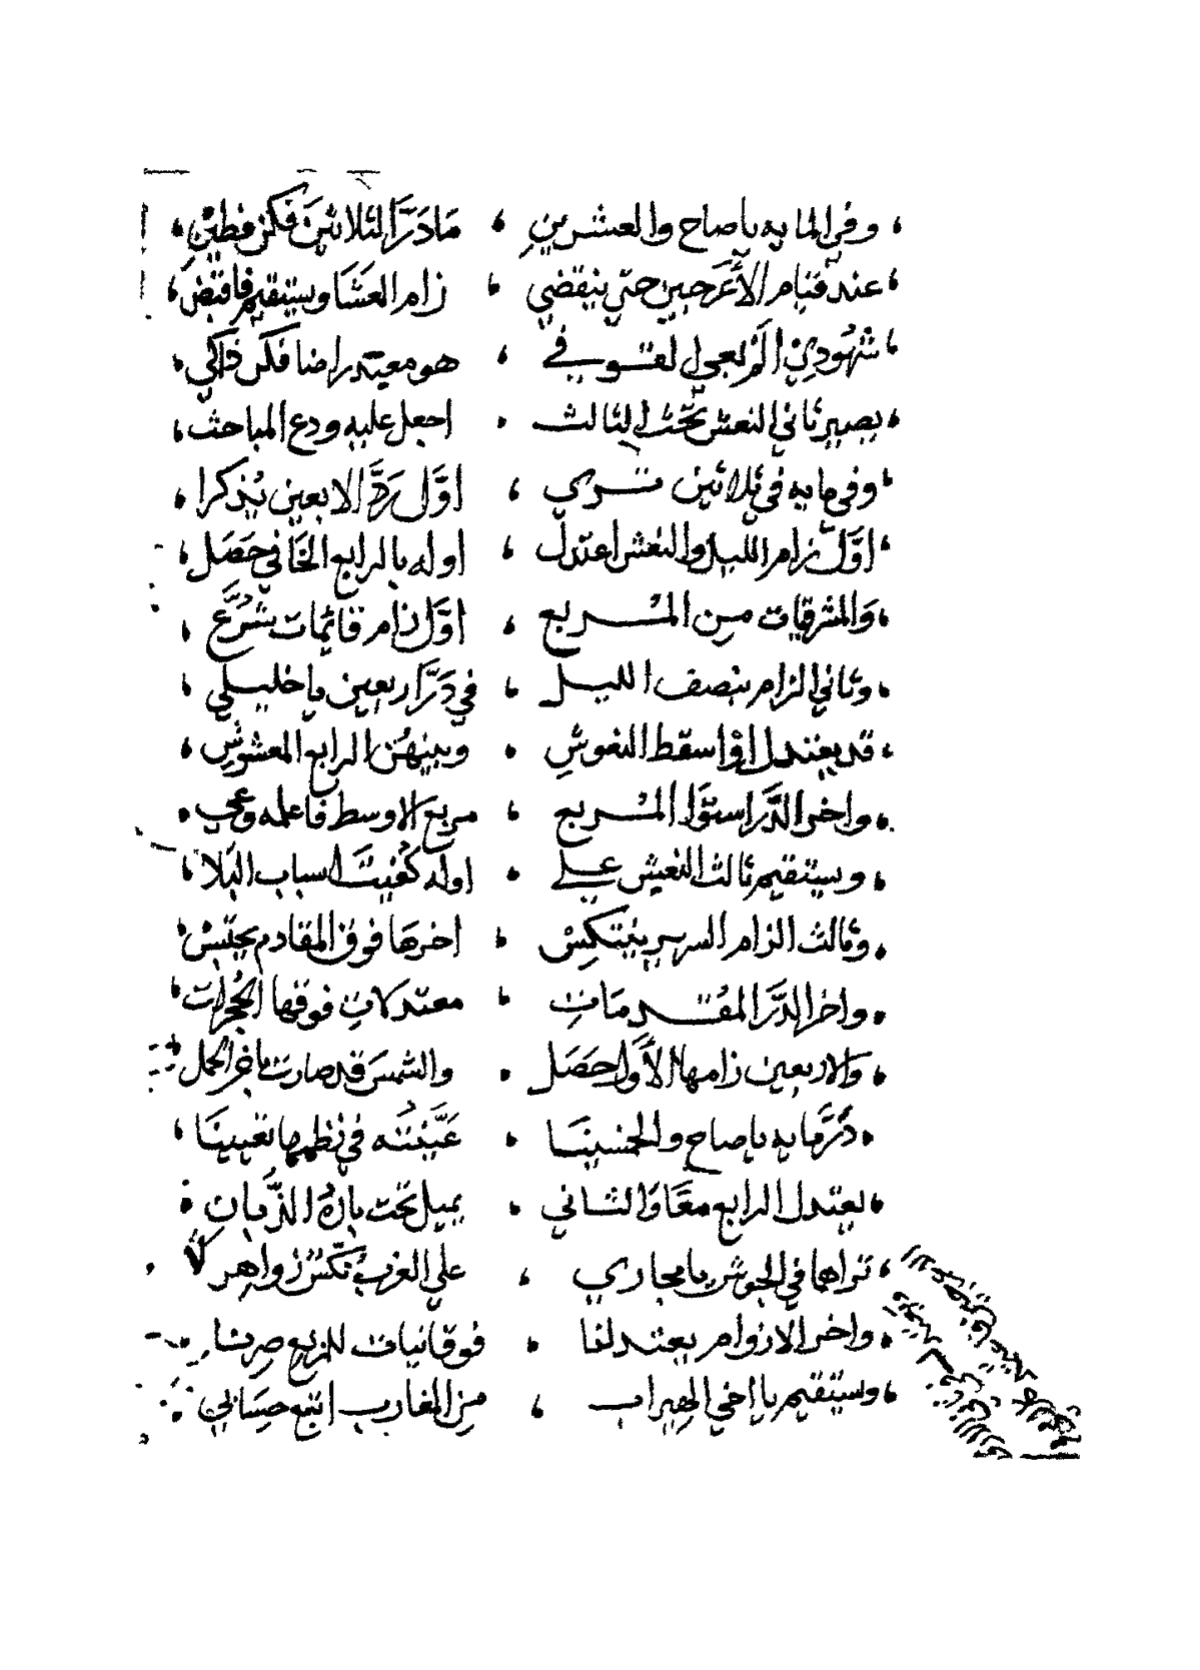 وفي المايه ياصاح والعشرين ، مادرّ الثلاثين فكن فطين
عند قيام الأعرجين حتي ينقضي ، زام العشا ويستقيم فاقتض
شهودي ، هو معيد راضا فكن ذاكي
يصير ثاني النعش تحت الثالث ، اجعل عليه ودع المباحث
وفي مايه في ثلاثين تري ، اوّل درّ الاربعين يذكرا
اوّل زام الليل والنعش اعتدل ، اوله بالرابع الخافي حصل
والمشرقيات من المربع ، اوّل زام قائمات شرّع
وثاني الزام بنصف الليل ، في درّ اربعين يا خليلي
قد يعتدل اوسقط النعوش ، وبينهن الرابع المعشوش
واخر الدّر استوا المربع ، مربع الاوسط فاعلمه وعي
ويستقيم ثالث النعيش علي ، اوله كفيت اسباب البلا
وثالث الزام السرير ينتكس ، اخرها فوق المقادم يحتبس
واخر الدّر المقدمات ، معتدلات فوقها الحجرات
والاربعين زامها الأول حصل ، والشمس قد صارت باخر الحمل
درّ مايه ياصاح والخمسينا ، عيّنته في نظمها تعيينا
يعتدل الرابع معا والثاني ، يميل تحت يا الزّبان
تراهما في الجوش يا مجاري ، علي الغرب نكّس زواهر
واخر الازوام يعتدلنا ، فوقانيات للمربع صرنا
ويستقيم يا اخي الهيراب ، من المغارب اتبع حسابي